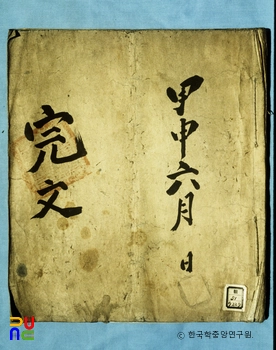 甲申六月 日
完文
© 한국학중앙연구원